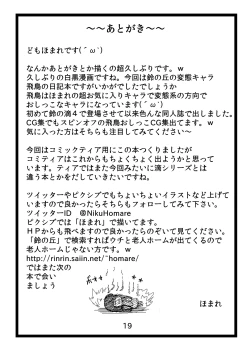 ～～あとがき～～
どもほまれです(´ω`)
なんかあとがきとか描くの超久しぶりです。w
久しぶりの白黒漫画ですね。今回は鈴の丘の変態キャラ
飛鳥の日記本ですがいかがでしたでしょうか
飛鳥はほまれの超お気に入りキャラで変態系の方向で
おしっこなキャラになっています(´ω`)
初めて鈴の滴４で登場させて以来色んな同人誌で出しました。
CG集でもスピンオフの飛鳥おしっこCG集出てます。w
気に入った方はそちらも注目してみてください～
今回はコミックティア用にこの本つくりましたが
コミティアはこれからもちょくちょく出ようかと思って
います。ティアではまた今回みたいに滴シリーズとは
違う本とかをだしていきたいですね。
ツイッターやピクシブでもちょいちょいイラストなど上げて
いますので良かったらそちらもフォローしてみて下さい。
ツイッターID　@NikuHomare
ピクシブでは「ほまれ」で描いてます。
ＨＰからも飛べますので良かったらのぞいて見てください。
「鈴の丘」で検索すればウチと老人ホームが出てくるので
老人ホームじゃない方です。w
http://rinrin.saiin.net/~homare/
ではまた次の
本で会い
ましょう
ほまれ
19